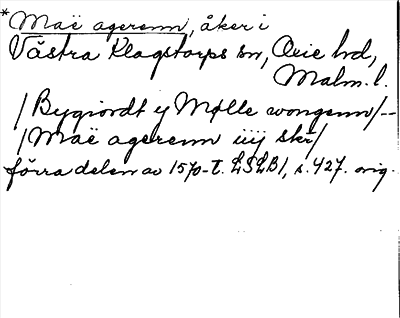 *Maë agerenn, åker i
Västra Klagstorps sn, Oxie hd,
Malm. l.
/Bygiordt y Mølle wongenn/--
/Maë agerenn iiij skr/
förra delen av 1570-t. LSLB1, s. 427. orig.